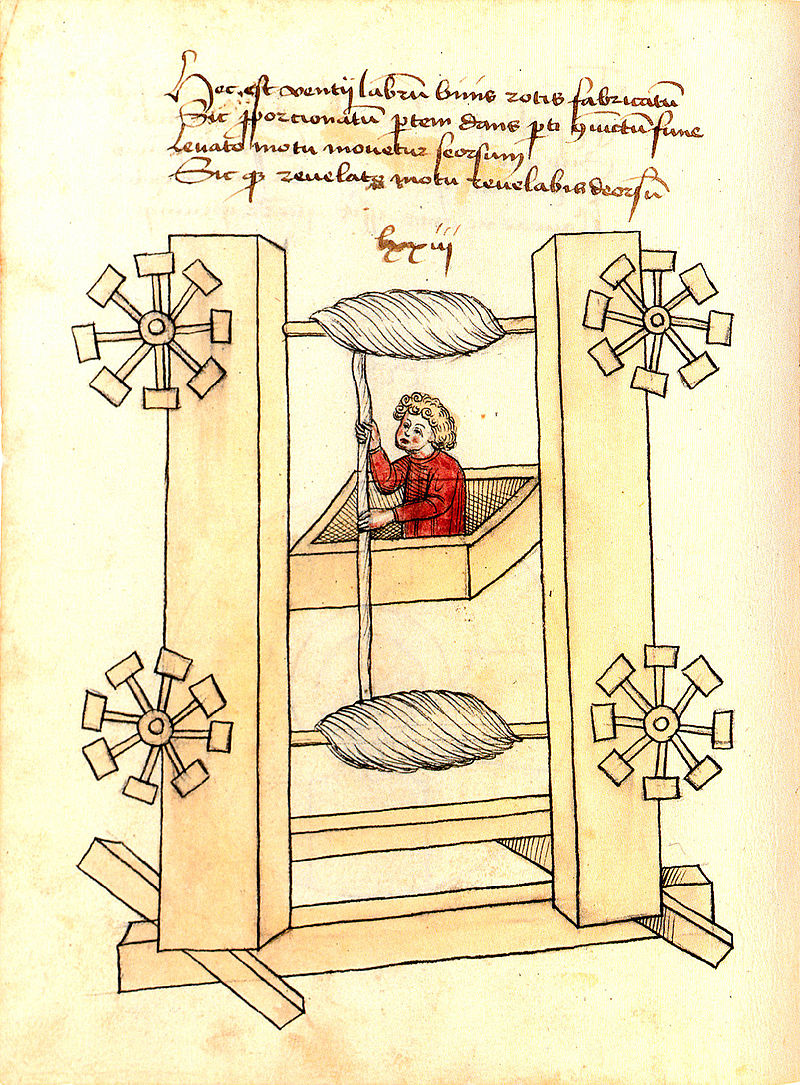 Hec est ventij labrū binis rotis fabricatū
Sic ꝓporcionatū ꝑtem dans ꝑti ꝯiūctū fune
Levato motu movetur seorsum
Sic qꝫ revelato motu revelabis deorsū
lxxiij